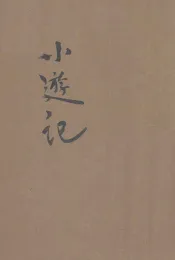 小遊記